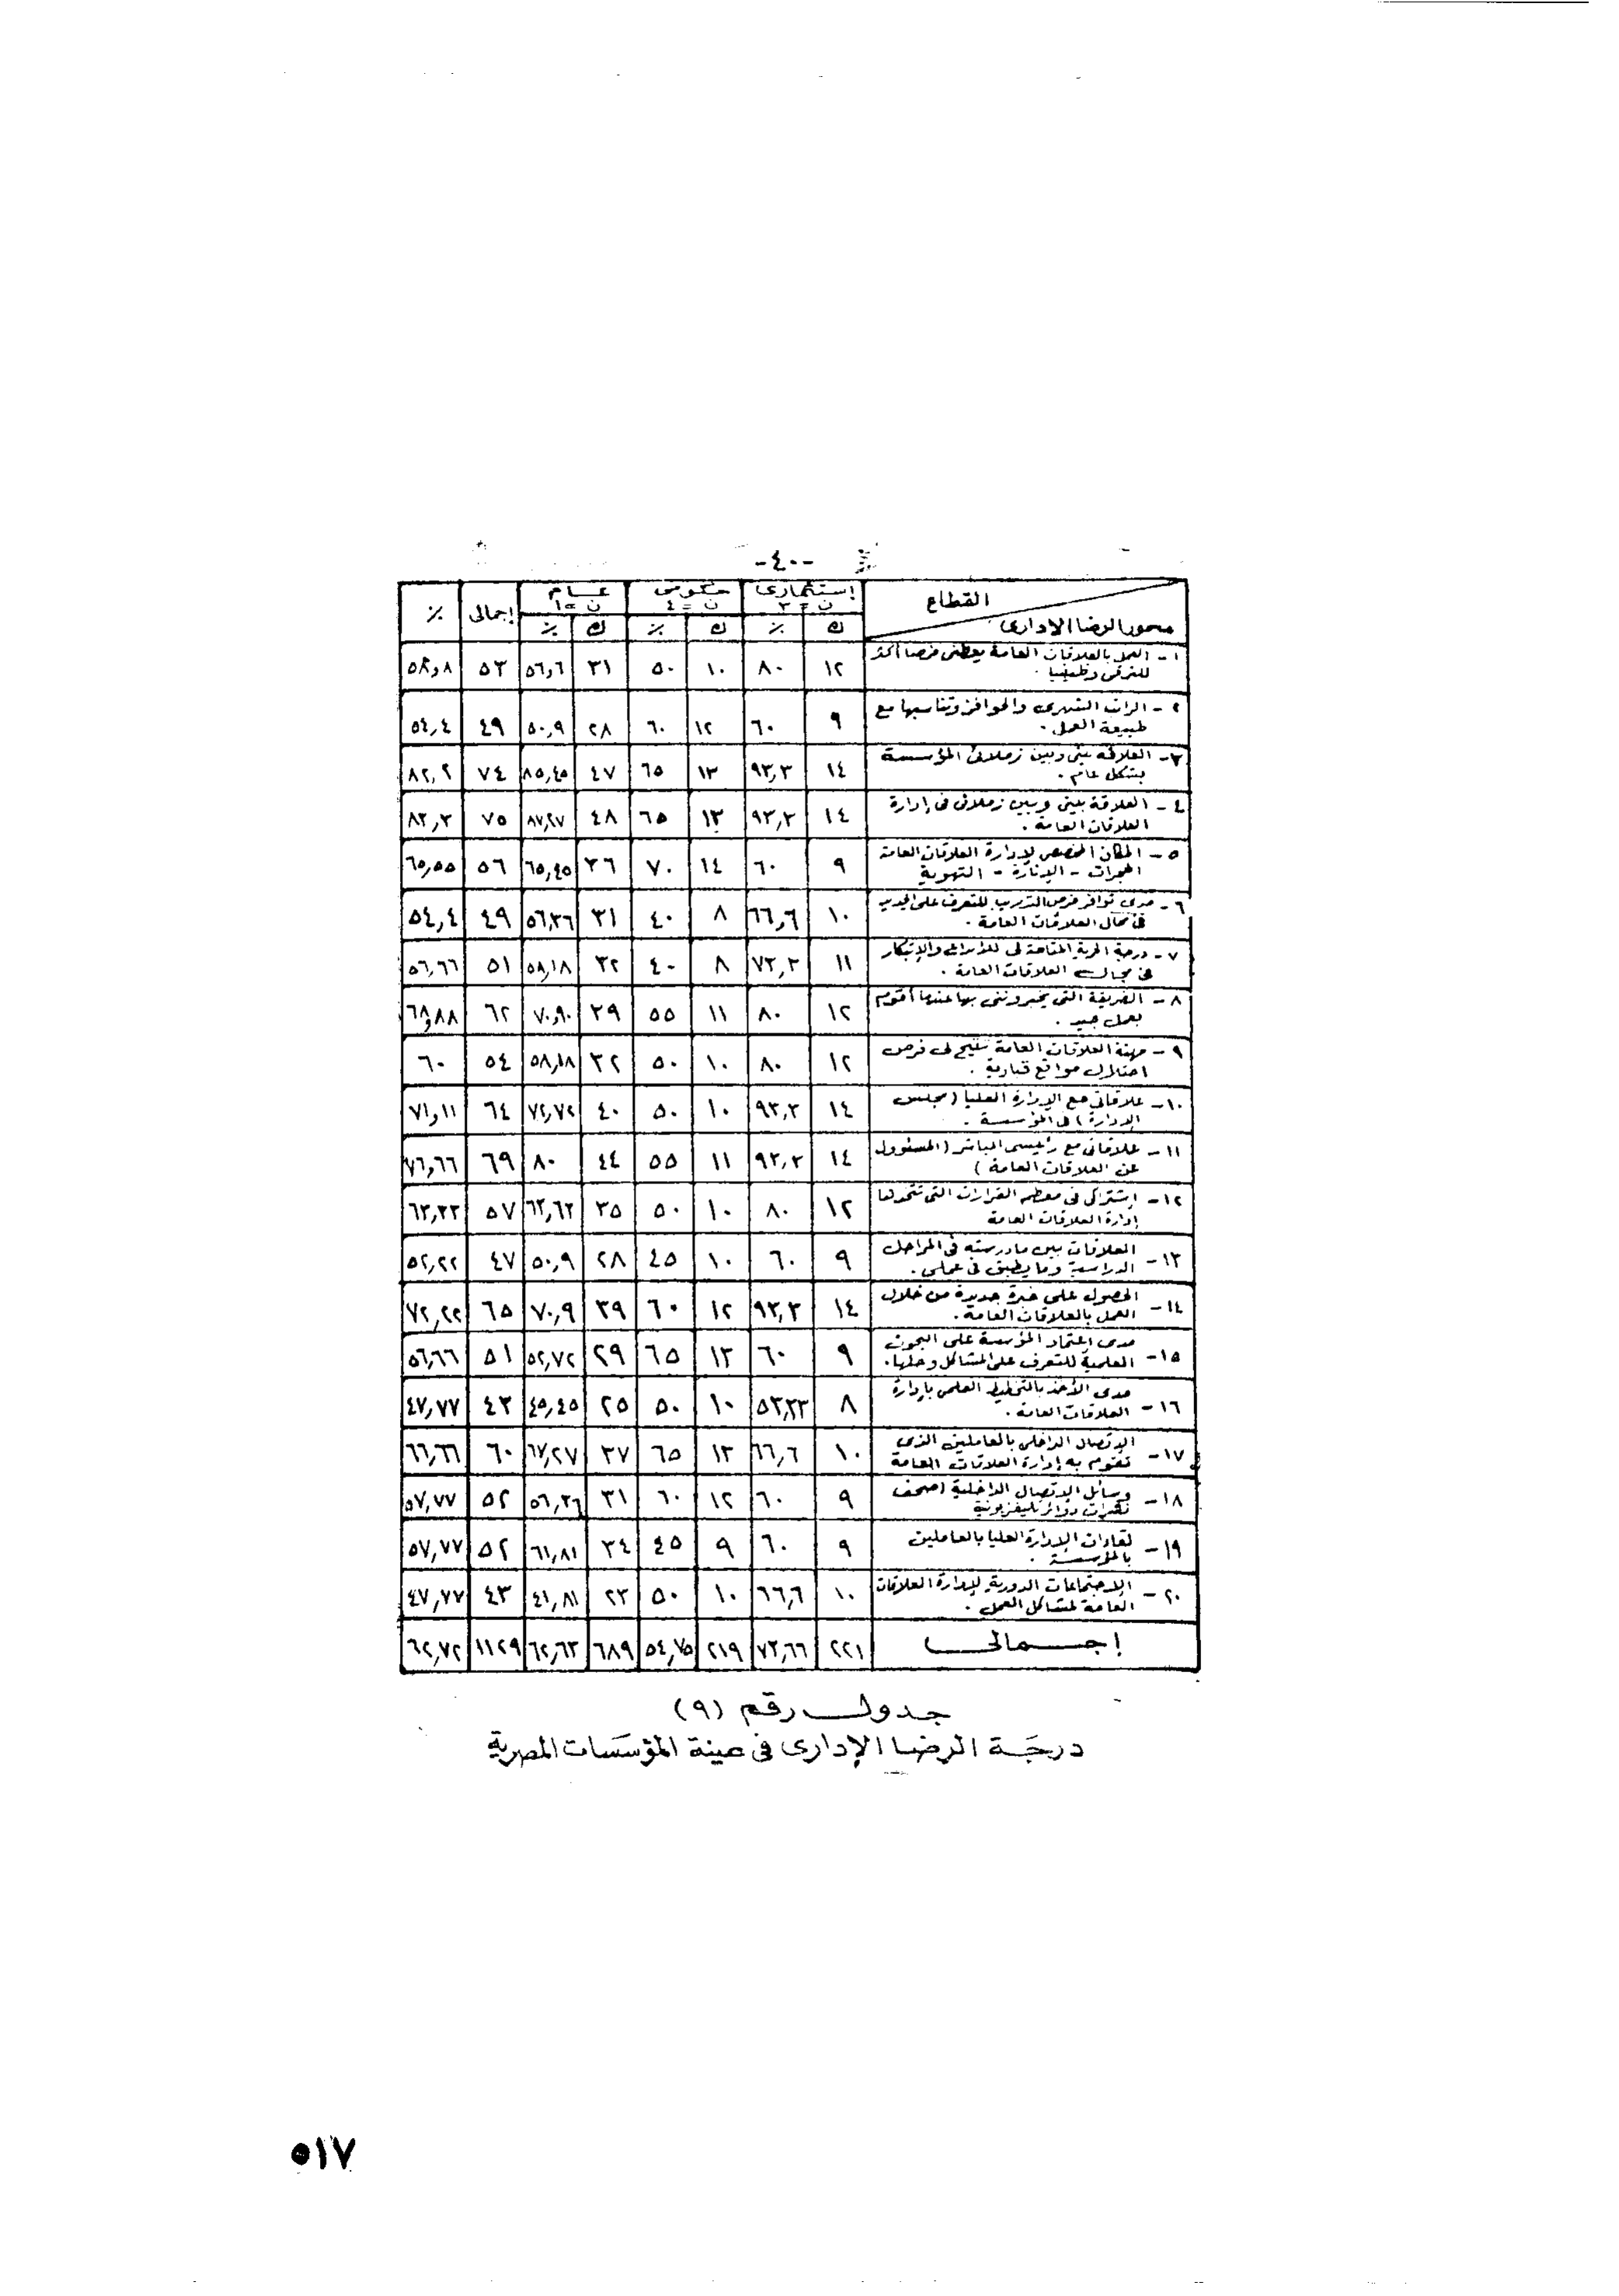 -٤٠-
القطاع إستثمارى حكومى عام إجمالى ٪
ن = ٣ ن = ٤ ن = ١١
محور الرضا الإدارى ك ٪ ك ٪ ك ٪
١- العمل بالعلاقات العامة يعطنى فرصا أكثر
للترقى وظيفيا . ١٢ ٨٠ ١٠ ٥٠ ٣١ ٥٦,٦ ٥٣ ٥٨,٨
٢- الراتب الشهرى والحوافز وتناسبها مع
طبيعة العمل . ٩ ٦٠ ١٢ ٦٠ ٢٨ ٥٠,٩ ٤٩ ٥٤,٤
٣- العلاقة بينى وبين زملائى المؤسسة
بشكل عام . ١٤ ٩٣,٣ ١٣ ٦٥ ٤٧ ٨٥,٤٥ ٧٤ ٨٢,٢
٤- العلاقة بينى وبين زملائى فى إدارة
العلاقات العامة . ١٤ ٩٣,٣ ١٣ ٦٥ ٤٨ ٨٧,٢٧ ٧٥ ٨٣,٣
٥- المكان المخصص لإدارة العلاقات العامة
الحجرات - الإنارة - التهوية ٩ ٦٠ ١٤ ٧٠ ٣٦ ٦٥,٤٥ ٥٦ ٦٥,٥٥
٦- مدى توافر فرص التدريب للتعرف على الجديد
فى مجال العلاقات العامة . ١٠ ٦٦,٦ ٨ ٤٠ ٣١ ٥٦,٣٦ ٤٩ ٥٤,٤
٧- درجة الحرية المتاحة لى للإبداع والإبتكار
فى مجال العلاقات العامة . ١١ ٧٣,٣ ٨ ٤٠ ٣٢ ٥٨,١٨ ٥١ ٥٦,٦٦
٨- الطريقة التى يخبروننى بها عندما أقوم
بعمل جيد . ١٢ ٨٠ ١١ ٥٥ ٣٩ ٧٠,٩٠ ٦٢ ٦٨,٨٨
٩- مهنة العلاقات العامة تتيح لى فرص
احتلال مواقع قيادية . ١٢ ٨٠ ١٠ ٥٠ ٣٢ ٥٨,١٨ ٥٤ ٦٠
١٠- علاقاتى مع الإدارة العليا (مجلس
الإدارة) فى المؤسسة . ١٤ ٩٣,٣ ١٠ ٥٠ ٤٠ ٧٢,٧٢ ٦٤ ٧١,١١
١١- علاقاتى مع رئيسى المباشر (المسئوول
عن العلاقات العامة) ١٤ ٩٣,٣ ١١ ٥٥ ٤٤ ٨٠ ٦٩ ٧٦,٦٦
١٢- إشتراكى فى معظم القرارات التى تتخذها
إدارة العلاقات العامة ١٢ ٨٠ ١٠ ٥٠ ٣٥ ٦٣,٦٣ ٥٧ ٦٣,٣٣
١٣- العلاقات بين ما درسته فى المراحل
الدراسية وما يطبق فى عملى . ٩ ٦٠ ١٠ ٤٥ ٢٨ ٥٠,٩ ٤٧ ٥٢,٢٢
١٤- الحصول على خبرة جديدة من خلال
العمل بالعلاقات العامة . ١٤ ٩٣,٣ ١٢ ٦٠ ٣٩ ٧٠,٩ ٦٥ ٧٢,٢٢
١٥- مدى إعتماد المؤسسة على البحوث
العلمية للتعرف على المشاكل وحلها . ٩ ٦٠ ١٣ ٦٥ ٢٩ ٥٢,٧٢ ٥١ ٥٦,٦٦
١٦- مدى الأخذ بالتخطيط العلمى بإدارة
العلاقات العامة . ٨ ٥٣,٣٣ ١٠ ٥٠ ٢٥ ٤٥,٤٥ ٤٣ ٤٧,٧٧
١٧- الإتصال الداخلى بالعاملين الذى
تقوم به إدارة العلاقات العامة ١٠ ٦٦,٦ ١٣ ٦٥ ٣٧ ٦٧,٢٧ ٦٠ ٦٦,٦٦
١٨- وسائل الإتصال الداخلية (صحف
نشرات دوائر تليفزيونية ٩ ٦٠ ١٢ ٦٠ ٣١ ٥٦,٣٦ ٥٢ ٥٧,٧٧
١٩- لقاءات الإدارة العليا بالعاملين
بالمؤسسة . ٩ ٦٠ ٩ ٤٥ ٣٤ ٦١,٨١ ٥٢ ٥٧,٧٧
٢٠- الإجتماعات الدورية لإدارة العلاقات
العامة لمشاكل العمل . ١٠ ٦٦,٦ ١٠ ٥٠ ٢٣ ٤١,٨١ ٤٣ ٤٧,٧٧
إجمالى ٢٢١ ٧٣,٦٦ ٢١٩ ٥٤,٧٥ ٦٨٩ ٦٢,٦٣ ١١٢٩ ٦٢,٧٢
جدول رقم (٩)
درجة الرضا الإدارى فى عينة المؤسسات المصرية
٥١٧